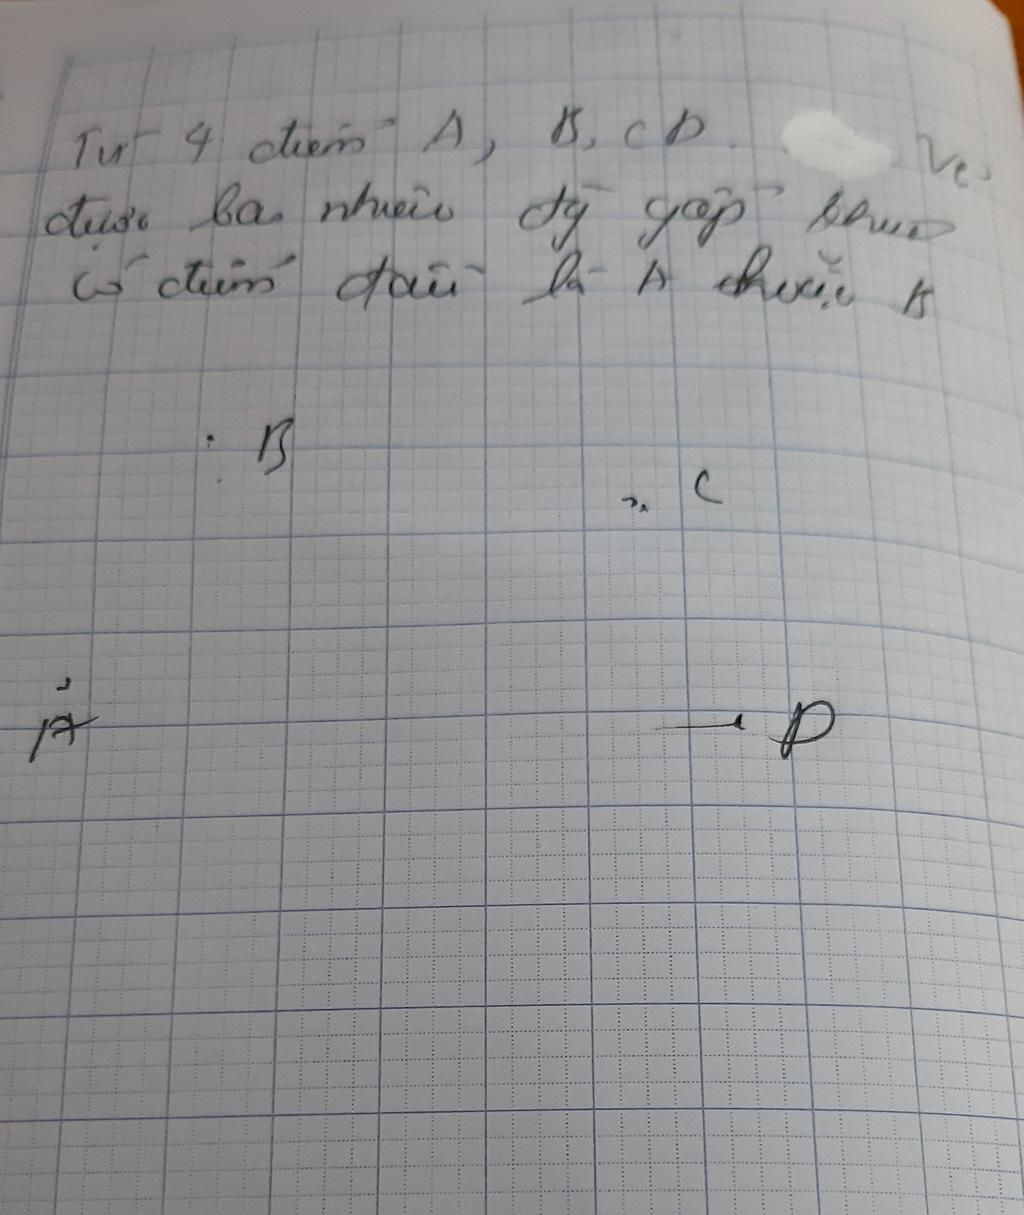 Từ 4 điểm A, B, C D. Vẽ
được bao nhiêu đg gấp khúc
có điểm đầu là A hoặc B
B
C
A
D